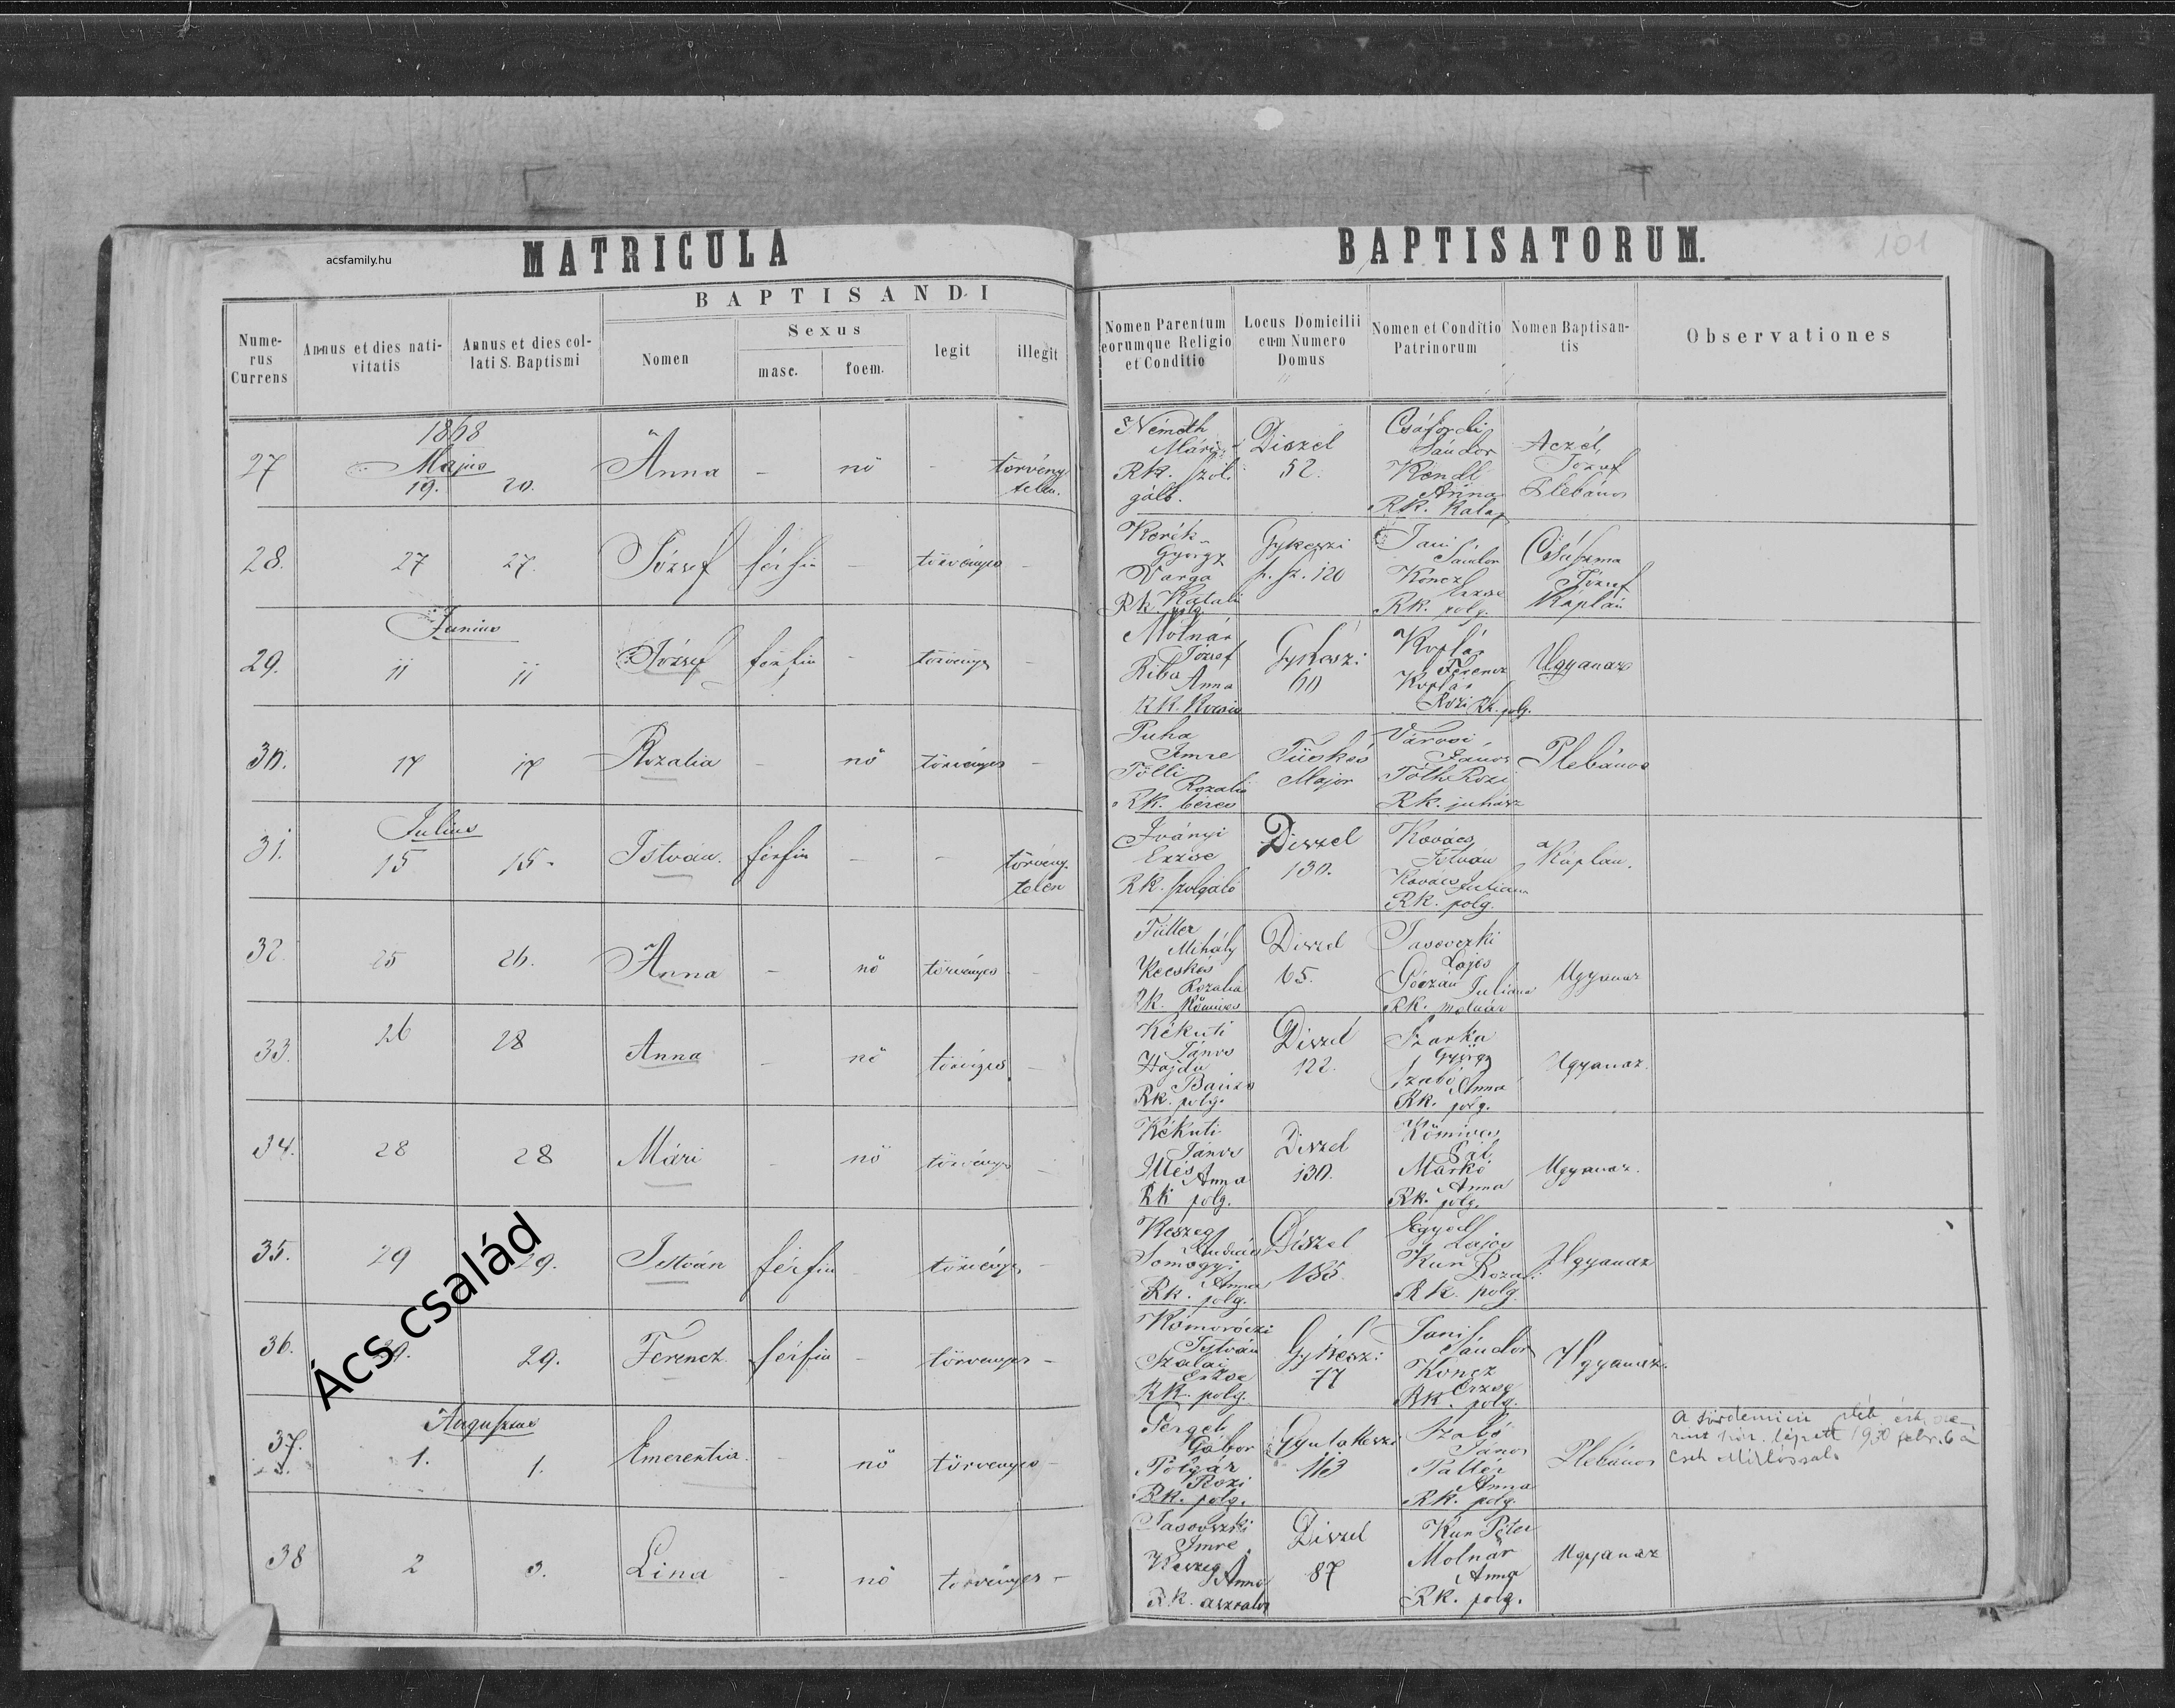 MATRICULA BAPTISATORUM.
101
acsfamily.hu
BAPTISANDI
Nume-
rus
Currens
Annus et dies nati-
vitatis
Annus et dies col-
lati S. Baptismi
Nomen
Sexus
masc.
foem.
legit
illegit
Nomen Parentum
eorumque Religio
et Conditio
Locus Domicilii
cum Numero
Domus
Nomen et Conditio
Patrinorum
Nomen Baptisan-
tis
Observationes
1868
Majus
27 19. 20. Anna - nő - törvény
telen.
Németh
Mária
Rk. szol
gáló.
Diszel
52.
Csáfordi
Sándor
Kendl
Anna
Rk.
Aczél
József
Plebános
28. 27 27. József férfiu - törvényes -
György
Varga
Katali
Rk. polg.
Gykeszi
120
Sándor
Koncz
Erzse
Rk. polg.
József
Káplán
Junius
29. 11 11 József férfiu - törvényes -
Molnár
József
Riba
Anna
Rk. Kocsis
Gykeszi
60
Ferencz
Rozi Rk. polg.
Ugyanaz
30. 17 17 Rozalia - nő törvényes -
Puha
Imre
Rozalia
Rk. béres
Tüskés
Major
Városi
János
Tóth Rozi
Rk. juhász
Plebános
Julius
31. 15 15. István. férfiu - - törvény-
telen
Iványi
Erzse
Rk. szolgáló
Diszel
130.
Kovács
István
Kovács Juliana
Rk. polg.
a Káplán.
32. 25 26. Anna - nő törvényes -
Mihály
Kecskés
Rozalia
Rk. Kőmives
Diszel
65.
Lajos
Góczán Juliana
Rk. molnár
Ugyanaz
33. 26 28 Anna - nő törvényes -
Kékuti
János
Hajdu
Rk. polg.
Diszel
122.
Szarka
György
Szabó Anna
Rk. polg.
Ugyanaz.
34. 28 28 Mári - nő törvényes -
Kékuti
János
Illés Anna
Rk polg.
Diszel
130.
Kőmives
Pál
Markó
Anna
Rk. polg.
Ugyanaz.
35. 29 29. István férfiu - törvényes -
Keszeg
András
Somogyi
Anna
Rk. polg.
Diszel
185.
Egyed
Lajos
Kun
Rozali
Rk. polg.
Ugyanaz
36. 29. Ferencz férfiu - törvényes -
Komoróczi
István
Szalai
Erzse
Rk. polg.
Gykeszi
77
Sándor
Koncz
Erzse
Rk. polg.
Ugyanaz.
Ács család
Augusztus
37. 1. 1. Emerentia. - nő törvényes -
Gergely
Gábor
Polgár
Rozi
Rk. polg.
Gyulakeszi
113
Szabó
János
Anna
Rk. polg.
Plebános
1930 febr. 6 á
Cseh Miklóssal.
38 2 3. Lina - nő törvényes -
Imre
Keszeg
Anna
Rk. asztalos
Diszel
87
Kun Péter
Molnár
Anna
Rk. polg.
Ugyanaz